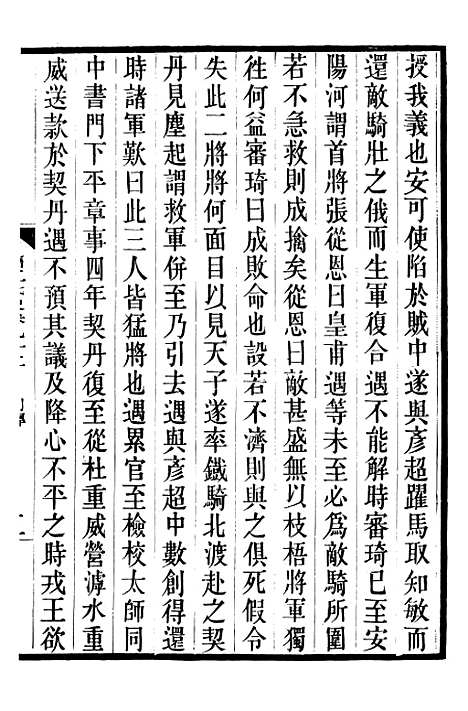 授我義也安可使陷於賊中遂與彥超躍馬取知敏而
還敵騎壯之俄而生軍復合遇不能解時審琦已至安
陽河謂首將張從恩曰皇甫遇等未至必爲敵騎所圍
若不急救則成擒矣從恩曰敵甚盛無以枝梧將軍獨
徃何益審琦曰成敗命也設若不濟則與之俱死假令
失此二將將何面目以見天子遂率鐵騎北渡赴之契
丹見塵起謂救軍併至乃引去遇與彥超中數創得還
時諸軍歎曰此三人皆猛將也遇累官至檢校太師同
中書門下平章事四年契丹復至從杜重威營滹水重
威送款於契丹遇不預其議及降心不平之時戎王欲